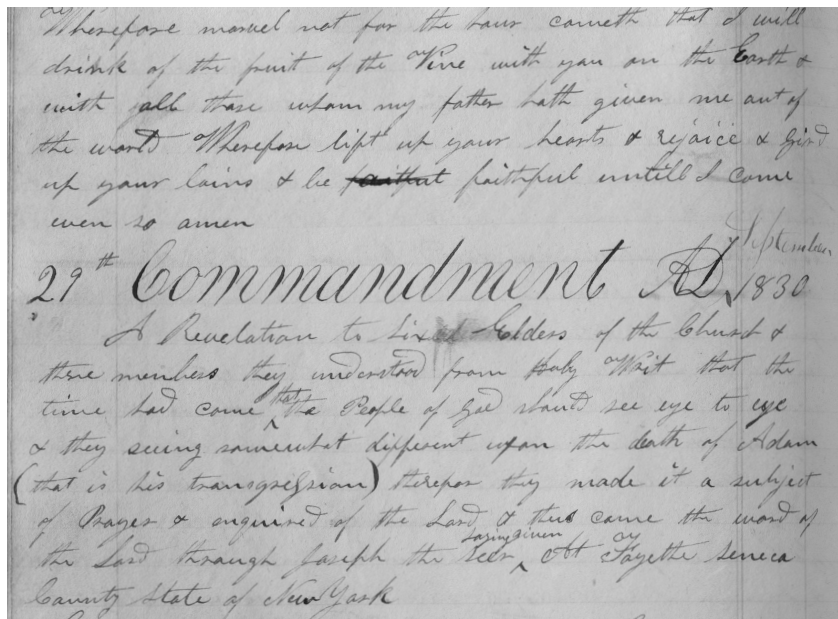 Wherefore marvel not for the hour cometh that I will
drink of the fruit of the Vine with you on the Earth &
with all those whom my father hath given me out of
the world Wherefore lift up your hearts & rejoice & gird
up your loins & be faithful faithful untill I come
even so amen
29th Commandment AD September 1830
A Revelation to six Elders of the Church &
three members they understood from Holy Writ that the
time had come that the People of God should see eye to eye
& they seeing somewhat different upon the death of Adam
(that is his transgression) therefor they made it a subject
of Prayer & enquired of the Lord & thus came the word of
the Lord through Joseph the Seer saying given At Fayette Seneca
County State of New York